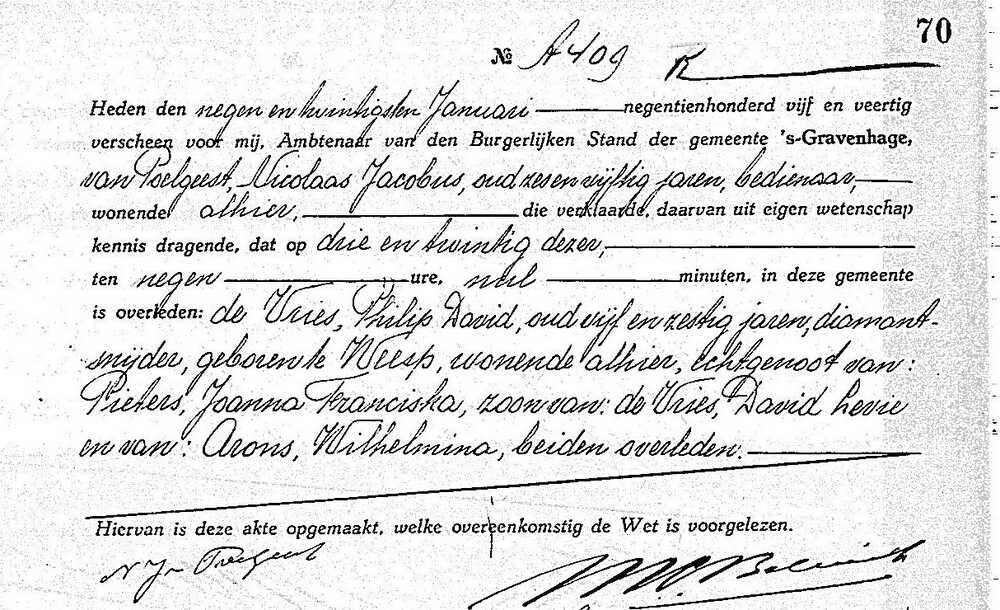 70
№ A409 K
Heden den negen en twintigsten Januari negentienhonderd vijf en veertig
verscheen voor mij, Ambtenaar van den Burgerlijken Stand der gemeente 's-Gravenhage,
van Poelgeest, Nicolaas Jacobus, oud zes en vijftig jaren, bedienaar,
wonende alhier, die verklaarde, daarvan uit eigen wetenschap
kennis dragende, dat op drie en twintig dezer,
ten negen ure, nul minuten, in deze gemeente
is overleden: de Vries, Philip David, oud vijf en zestig jaren, diamant-
snijder, geboren te Weesp, wonende alhier, echtgenoot van:
Pieters, Joanna Franciska, zoon van: de Vries, David Levie
en van: Arons, Wilhelmina, beiden overleden.
Hiervan is deze akte opgemaakt, welke overeenkomstig de Wet is voorgelezen.
Poelgeest